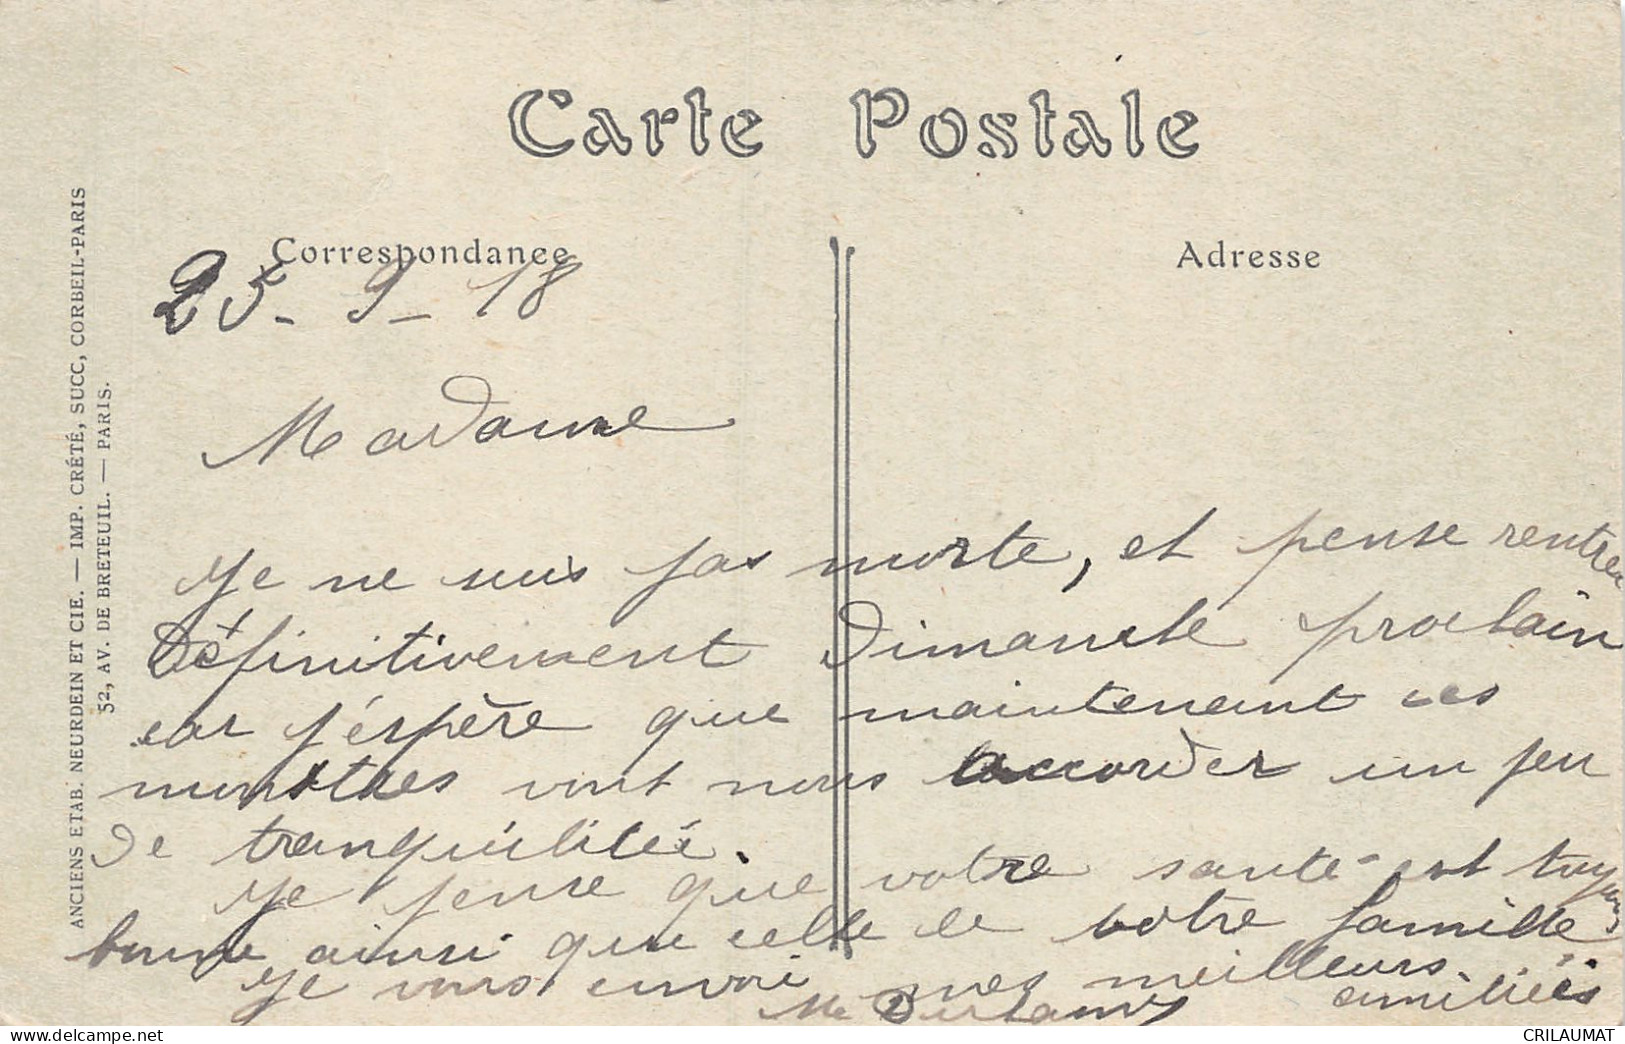 Carte Postale
Correspondance
Adresse
ANCIENS ETAB. NEURDEIN ET CIE. — IMP. CRÉTÉ, SUCC, CORBEIL-PARIS
52, AV. DE BRETEUIL. — PARIS.
25-9-18
Madame
Je ne suis pas morte, et pense rentrer
définitivement dimanche prochain
car j'espère que maintenant ces
monstres vont nous accorder un peu
de tranquilité.
Je pense que votre santé est toujours
bonne ainsi que celle de votre famille
Je vous envoi mes meilleurs
amitiées
Me
CRILAUMAT